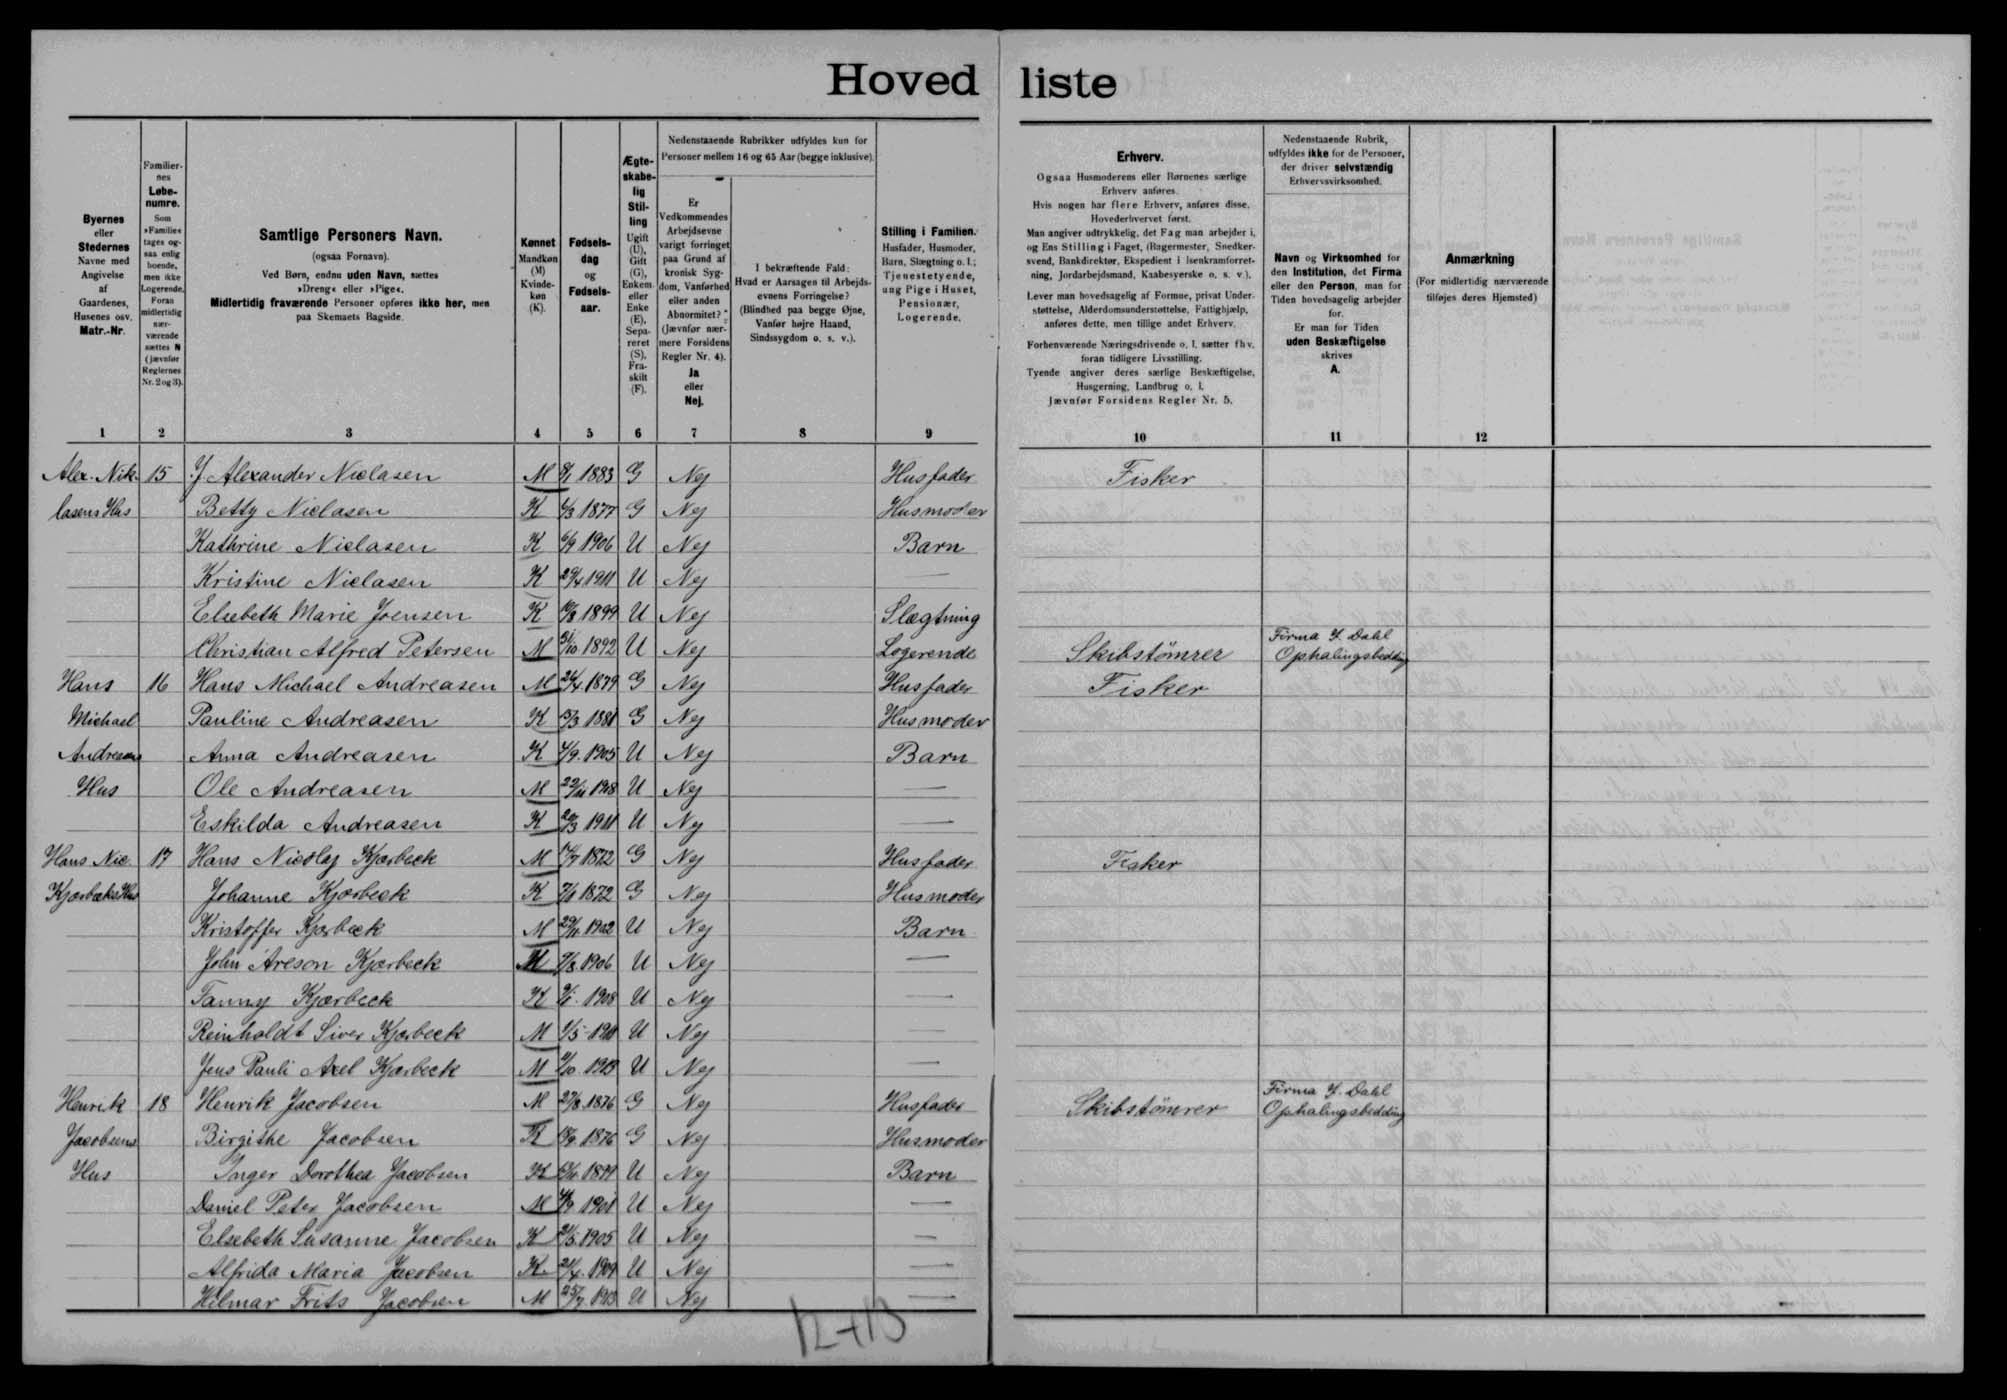 Hoved liste
Byernes
eller
Stedernes
Navne med
Angivelse
af
Gaardenes,
Husenes osv.
Matr.-Nr.
Familier-
nes
Løbe-
numre.
Som
»Familie«
tages og-
saa enlig
boende,
men ikke
Logerende.
Foran
midlertidig
nær-
værende
sættes N
(jævnfør
Reglernes
Nr. 2 og 3).
Samtlige Personers Navn.
(ogsaa Fornavn).
Ved Børn, endnu uden Navn, sættes
»Dreng« eller »Pige«.
Midlertidig fraværende Personer opføres ikke her, men
paa Skemaets Bagside.
Kønnet
Mandkøn
(M)
Kvinde-
køn
(K).
Fødsels-
dag
og
Fødsels-
aar.
Ægte-
skabe-
lig
Stil-
ling
Ugift
(U),
Gift
(G),
Enkem.
eller
Enke
(E),
Sepa-
reret
(S),
Fra-
skilt
(F).
Nedenstaaende Rubrikker udfyldes kun for
Personer mellem 16 og 65 Aar (begge inklusive).
Er
Vedkommendes
Arbejdsevne
varigt forringet
paa Grund af
kronisk Syg-
dom, Vanførhed
eller anden
Abnormitet?
(Jævnfør nær-
mere Forsidens
Regler Nr. 4).
Ja
eller
Nej.
I bekræftende Fald:
Hvad er Aarsagen til Arbejds-
evnens Forringelse?
(Blindhed paa begge Øjne,
Vanfør højre Haand,
Sindssygdom o. s. v.).
Stilling i Familien.
Husfader, Husmoder,
Barn, Slægtning o. l.;
Tjenestetyende,
ung Pige i Huset,
Pensionær,
Logerende.
Erhverv.
Ogsaa Husmoderens eller Børnenes særlige
Erhverv anføres.
Hvis nogen har flere Erhverv, anføres disse.
Hovederhvervet først.
Man angiver udtrykkelig, det Fag man arbejder i,
og Ens Stilling i Faget, (Bagermester, Snedker-
svend, Bankdirektør, Ekspedient i Isenkramforret-
ning, Jordarbejdsmand, Kaabesyerske o. s. v.).
Lever man hovedsagelig af Formue, privat Under-
støttelse, Alderdomsunderstøttelse, Fattighjælp,
anføres dette, men tillige andet Erhverv.
Forhenværende Næringsdrivende o. l. sætter fhv.
foran tidligere Livsstilling.
Tyende angiver deres særlige Beskæftigelse,
Husgerning, Landbrug o. l.
Jævnfør Forsidens Regler Nr. 5.
Nedenstaaende Rubrik,
udfyldes ikke for de Personer,
der driver selvstændig
Erhvervsvirksomhed.
Navn og Virksomhed for
den Institution, det Firma
eller den Person, man for
Tiden hovedsagelig arbejder
for.
Er man for Tiden
uden Beskæftigelse
skrives
A.
Anmærkning
(For midlertidig nærværende
tilføjes deres Hjemsted)
1 2 3 4 5 6 7 8 9 10 11 12
Alex. Nik- 15 J. Alexander Niclasen M 1883 G Nej Husfader Fisker
lasens Hus Betty Niclasen K 1877 G Nej Husmoder
Kathrine Niclasen K 6/9 1906 U Nej Barn
Kristine Niclasen K 1911 U Nej —
Elsebeth Marie Joensen K 1899 U Nej Slægtning
Christian Alfred Petersen M 31/10 1892 U Nej Logerende Skibstömrer Firma J. Dahl Ophalingsbedding
Hans 16 Hans Michael Andreasen M 1879 G Nej Husfader Fisker
Michael Pauline Andreasen K 1881 G Nej Husmoder
Andreasens Anna Andreasen K 1905 U Nej Barn
Hus Ole Andreasen M U Nej —
Eskilda Andreasen K 1911 U Nej —
Hans Nic. 17 Hans Nicolaj Kjærbeck M 1872 G Nej Husfader Fisker
Kjærbæks Hus Johanne Kjærbeck K 1872 G Nej Husmoder
Kristoffer Kjærbeck M 29/11 1902 U Nej Barn
John Areson Kjærbeck M 7/8 1906 U Nej —
Fanny Kjærbeck K 1908 U Nej —
Reinholdt Siver Kjærbeck M U Nej —
Jens Pauli Axel Kjærbeck M 1913 U Nej —
Henrik 18 Henrik Jacobsen M 27/8 1876 G Nej Husfader Skibstömrer Firma J. Dahl Ophalingsbedding
Jacobsens Birgithe Jacobsen K 1876 G Nej Husmoder
Hus Inger Dorothea Jacobsen K U Nej Barn
Daniel Peter Jacobsen M 1901 U Nej —
Elsebeth Susanne Jacobsen K 1905 U Nej —
Alfrida Maria Jacobsen K 1909 U Nej —
Hilmar Frits Jacobsen M 25/7 1913 U Nej —
12+13